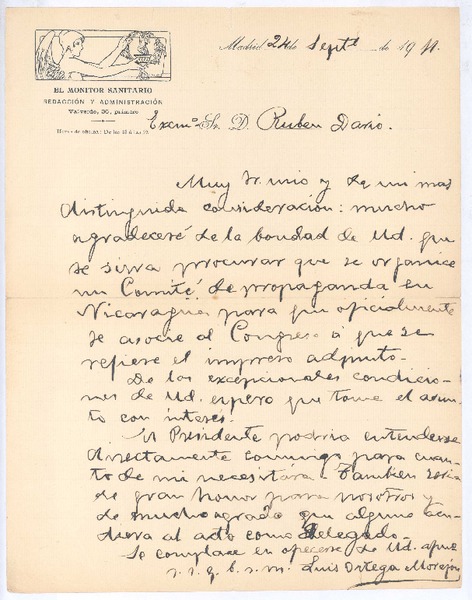 EL MONITOR SANITARIO
REDACCIÓN Y ADMINISTRACIÓN
Valverde, 30, primero
Madrid 24 de Septe de 1911.
Excmo Sr. D. Ruben Dario.
Muy Sr. mio y de mi mas
distinguida consideración: mucho
agradeceré de la bondad de Ud. que
se sirva procurar que se organice
un Comité de propaganda en
Nicaragua para que oficialmente
se asocie al Congreso á que se
refiere el impreso adjunto.
De las excepcionales condicio-
nes de Ud. espero que tome el asun-
to con interés.
El Presidente podria entenderse
directamente conmigo para cuan-
to de mi necesitára. Tambien seria
de gran honor para nosotros y
de mucho agrado que alguno acu-
diera al acto como Delegado.
Se complace en ofrecerse de Ud. afmo
s. s. q. b. s. m. Luis Ortega Morejón